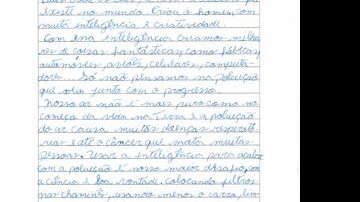 existe no mundo. Criou o homem, com
muita inteligência e criatividade.
Com essa inteligência criamos milha
res de coisas fantásticas, como fábricas,
automóveis, aviões, celulares, computa
dores... Só não pensamos na poluição
que veio junto com o progresso.
Nosso ar não é mais puro como no
começo da vida na Terra e a poluição
do ar causa muitas doenças respirató
rias e até o câncer que mata muitas
pessoas. Usar a inteligência para acabar
com a poluição é nosso maior desafio, com
a ciência e boa vontade. Colocando filtros
nas chaminés, usando menos o carro,